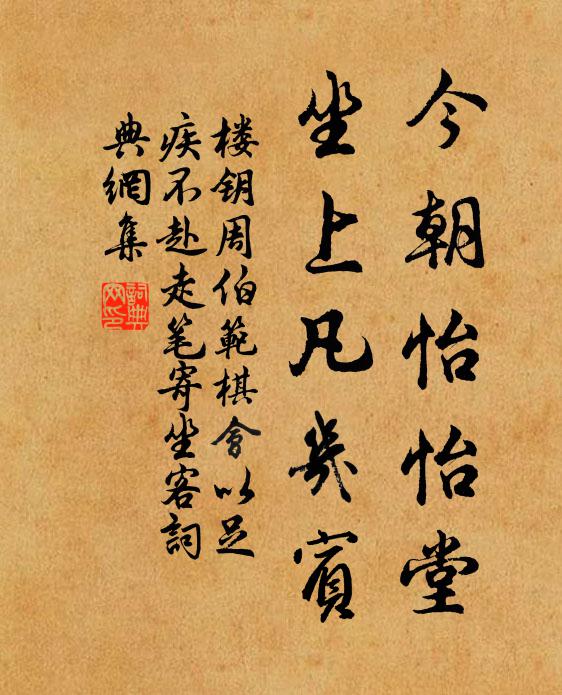 今朝怡怡堂
坐上凡幾賓
楼钥周伯範棋會以足
疾不赴走笔寄坐客詞
典網集
詞典網印